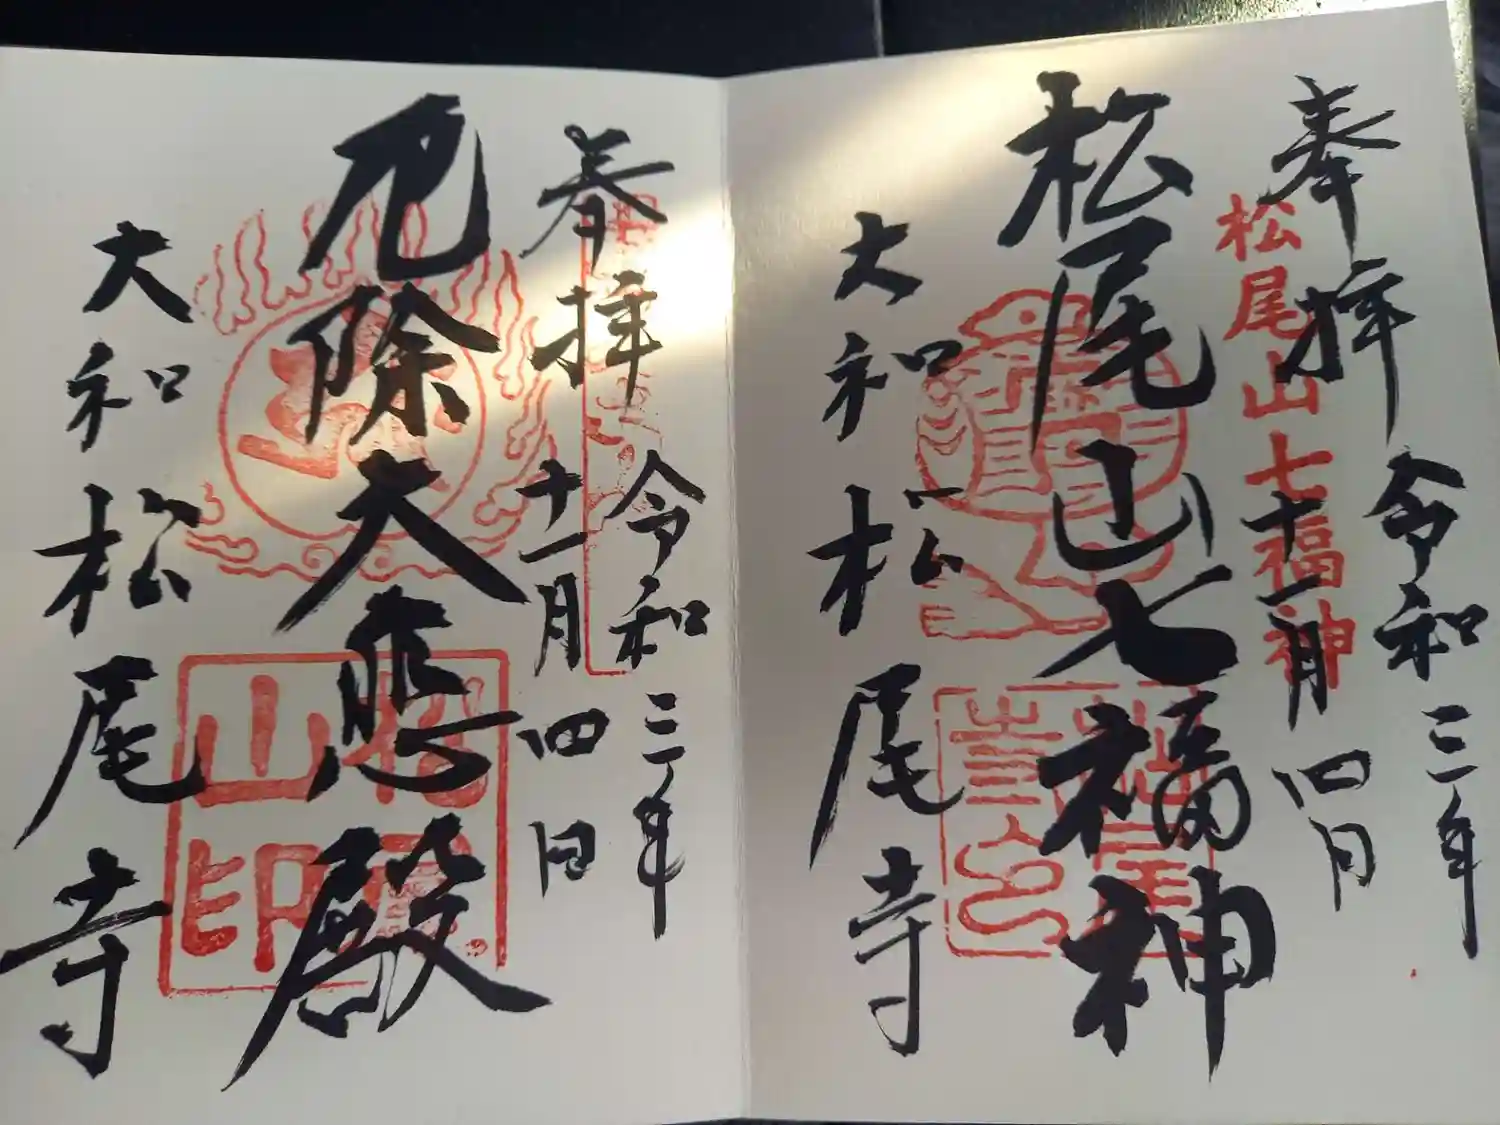 奉拝
令和三年
十一月四日
松尾山七福神
松尾山七福神
大和松尾寺
奉拝
令和三年
十一月四日
厄除大悲殿
松尾山印
大和松尾寺